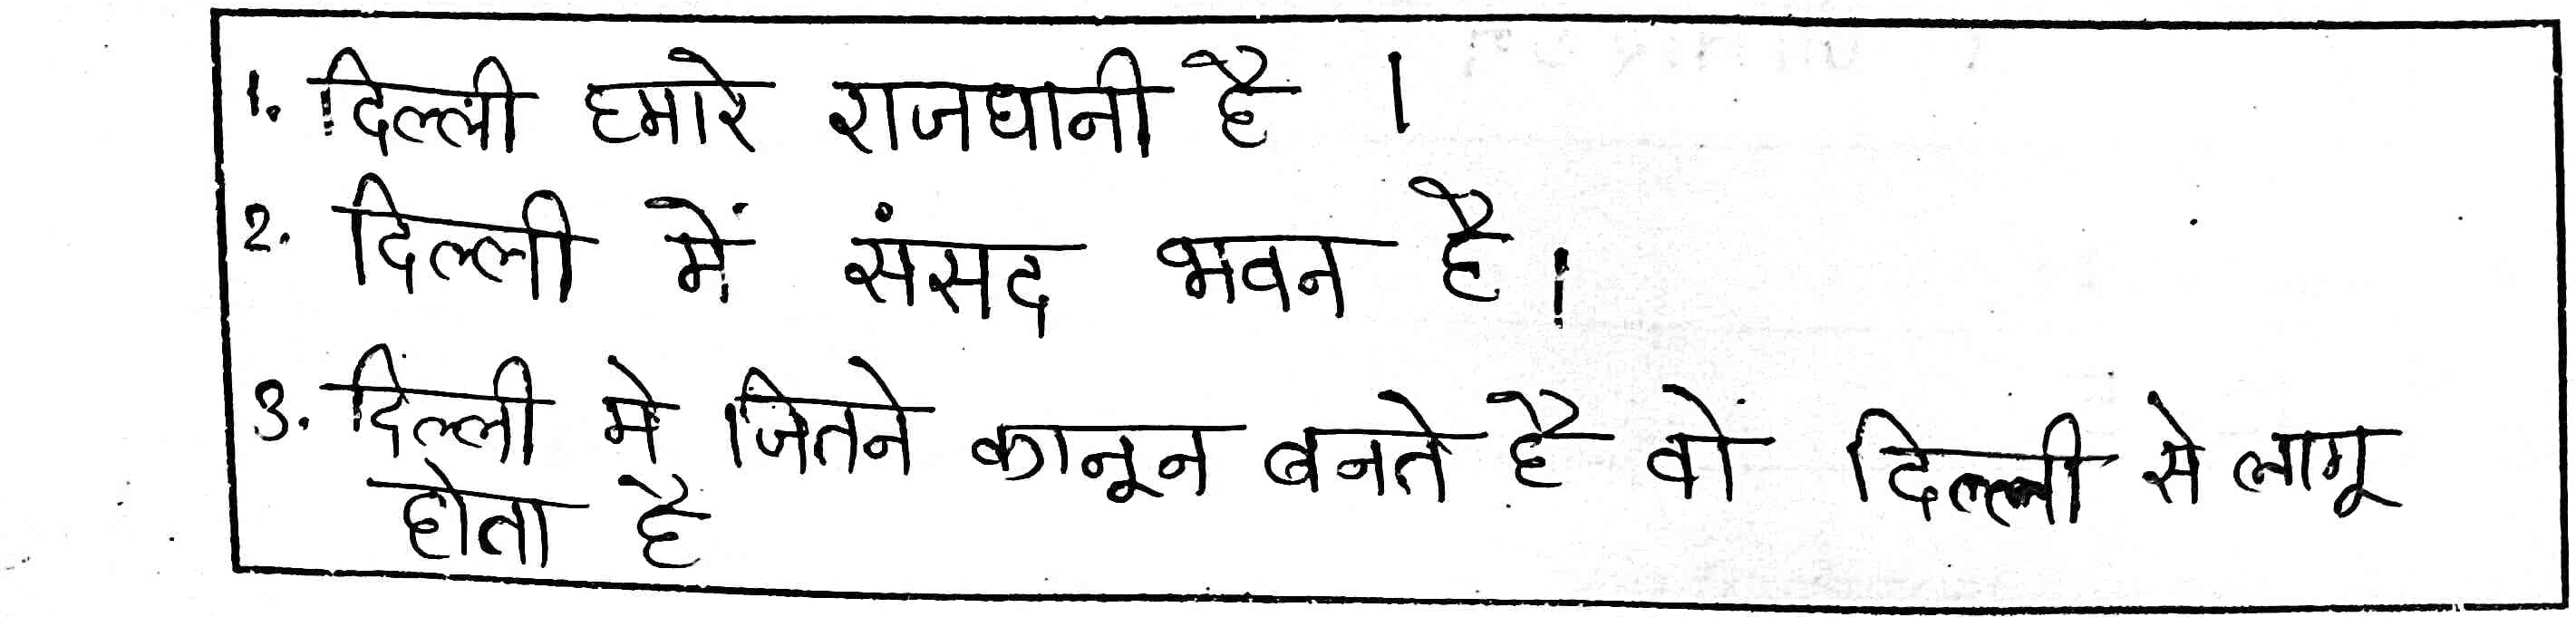 1. दिल्ली हमारे राजधानी है ।
2. दिल्ली में संसद भवन है।
3. दिल्ली मे जितने कानून बनते है वों दिल्ली से लागू
होता है